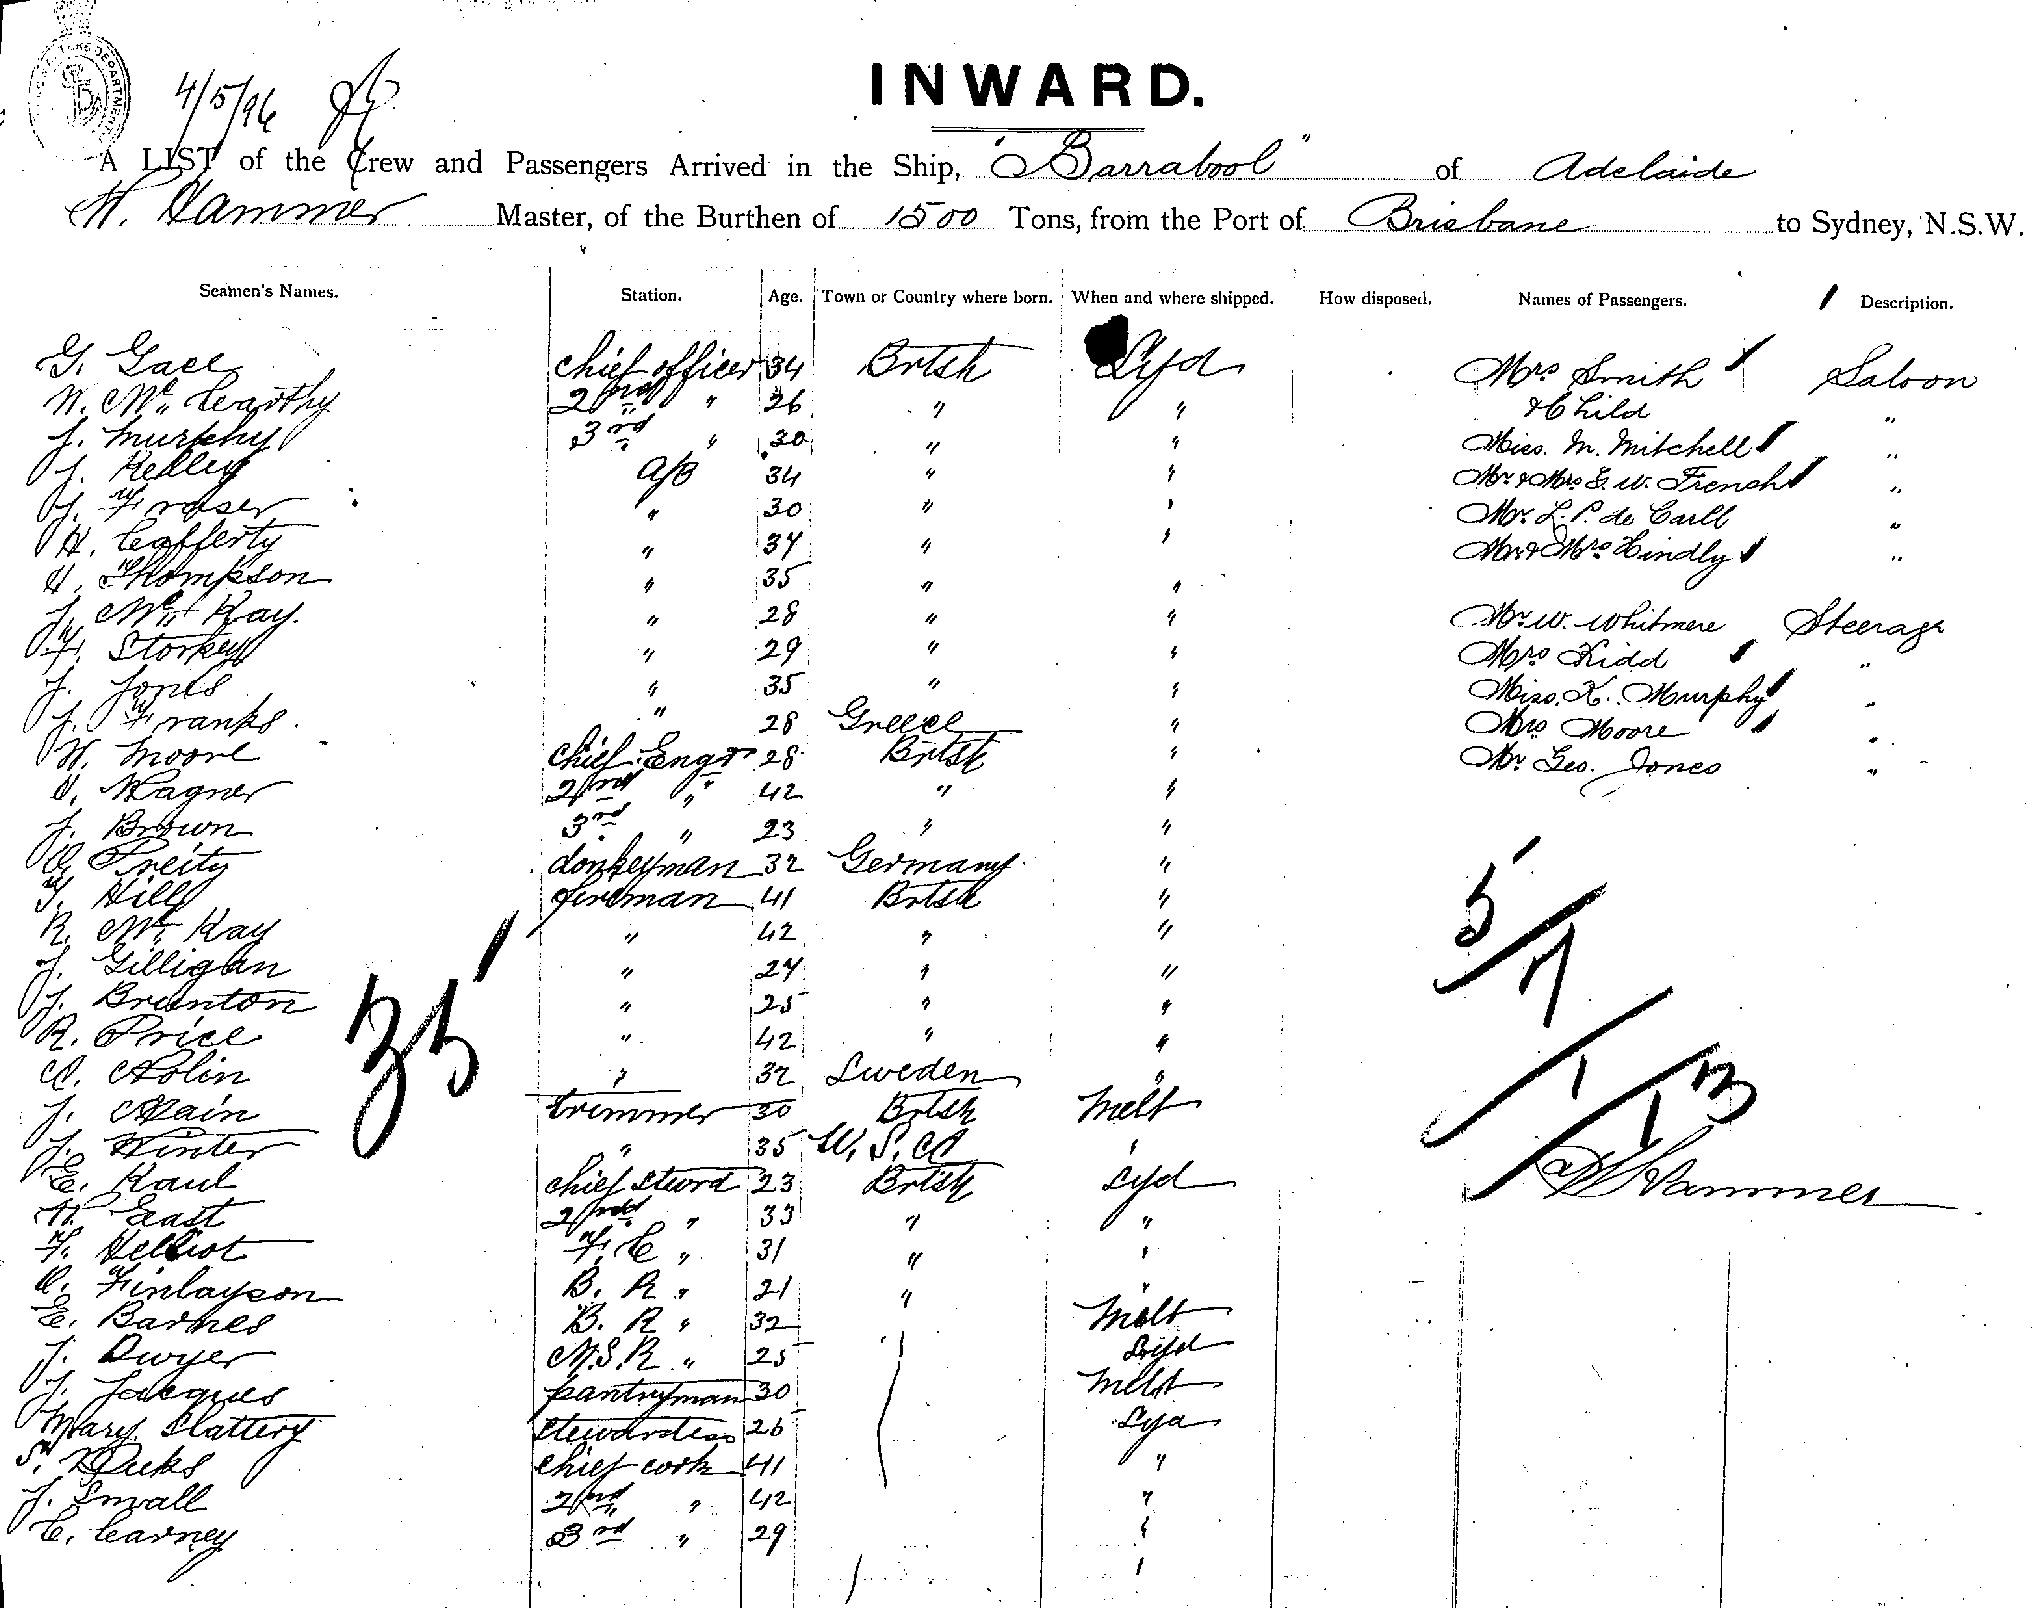 4/5/96
INWARD.
A LIST of the Crew and Passengers Arrived in the Ship, "Barrabool" of Adelaide
W. Hammer Master, of the Burthen of 1500 Tons, from the Port of Brisbane to Sydney, N.S.W.
Seamen's Names. Station. Age. Town or Country where born. When and where shipped. How disposed. Names of Passengers. Description.
G. Gall chief officer 34 Brtsh Syd Mrs Smith Saloon
W. Mc Cearthy 2nd " 26 " " & Child "
J. Murphy 3rd " 30 " " Miss. M. Mitchell "
J. Kelley A/B 34 " " Mr & Mrs G. W. French "
J. Fraser " 30 " " Mr. L. P. de Carll "
H. Cafferty " 34 " " Mr & Mrs Hindly "
H. Thompson " 35 " "
J. Mc Kay. " 28 " " Mr W. Whitmere Steerage
F. Storkey " 29 " " Mrs Kidd "
J. Jones " 35 " " Miss. K. Murphy "
J. Franks. " 28 Greece " Mrs Moore "
W. Moore chief Engr 28 Brtsh " Mr Geo. Jones "
H. Wagner 2nd " 42 " "
J. Brown 3rd " 23 " "
Preity donkeyman 32 Germany "
T. Hill fireman 41 Brtsh "
R. Mc Kay " 42 " "
J. Gilligan " 24 " "
J. Brunton " 25 " "
R. Price " 42 " "
A. Nolin " 32 Sweden "
J. Main trimmer 30 Brtsh Melb
J. Winter " 35 U. S. A "
E. Kaul chief stewrd 23 Brtsh Syd
W. East 2nd " 33 " "
F. Helliot F. C " 31 " "
A. Finlayson B. R " 21 " "
E. Barnes B. R " 32 Melb
J. Dwyer M.S.R " 25 Syd
J. Jacques pantryman 30 Melb
Mary Slattery stewardess 26 Syd
S. Dicks chief cook 41 "
J. Small 2nd " 42 "
C. Carney 3rd " 29 "
35
5/7/1/13
W Hammer